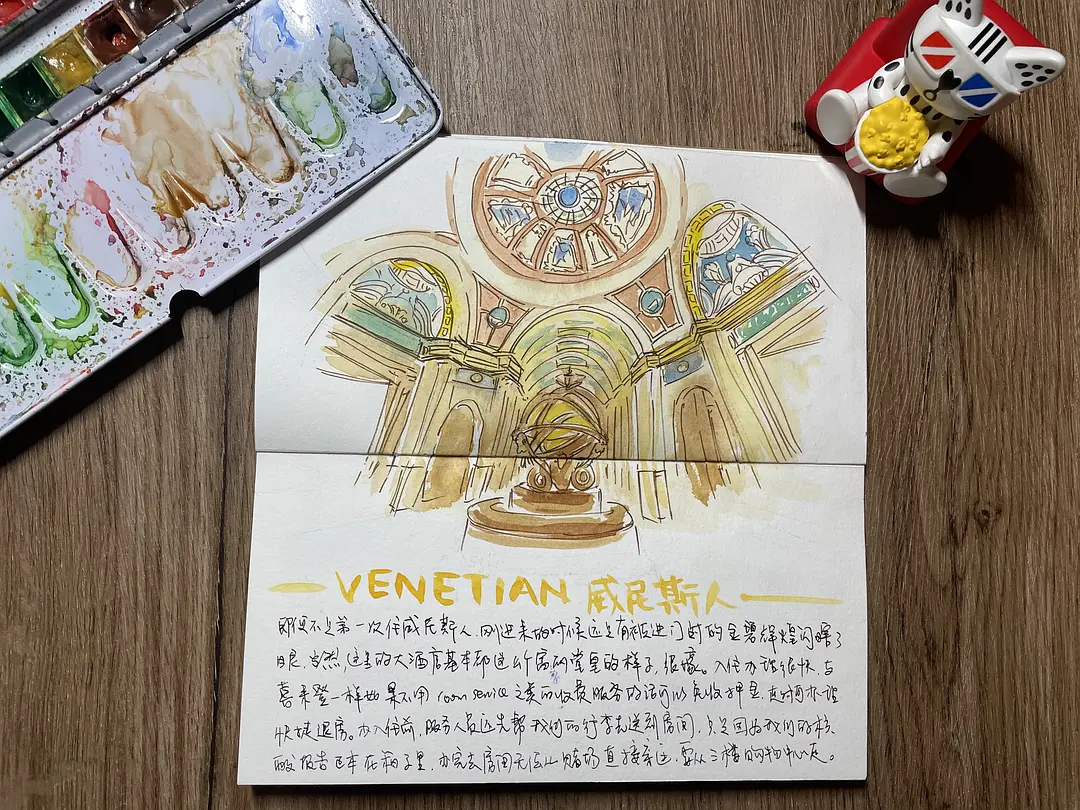 VENETIAN 威尼斯人
即便不是第一次住威尼斯人,刚进来的时候还是有被进门时的金碧辉煌闪瞎了
眼,当然,这里的大酒店基本都是这个富丽堂皇的样子,很壕。入住办理很快,与
喜来登一样如果不用 room service 之类的收费服务的话可以免收押金,走时再办理
快速退房。办入住前,服务人员还先帮我们的行李先送到房间,只是因为我们的核
酸报告还在箱子里,办完去房间无法从赌场直接走过,要从三楼购物中心走。